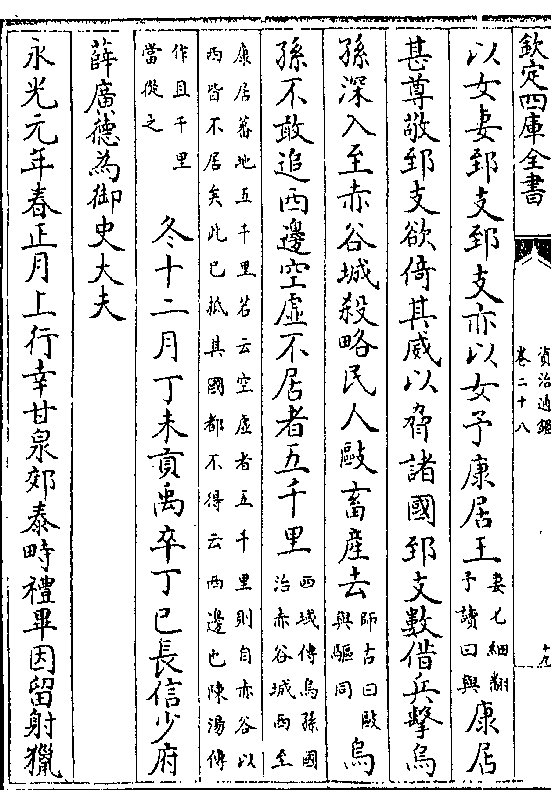 欽定四庫全書
資治通鑑
卷二十八
十九
以女妻郅支郅支亦以女予康居王妻七細翻予讀曰與康居
甚尊敬郅支欲倚其威以脅諸國郅支數借兵擊烏
孫深入至赤谷城殺略民人敺畜產去師古曰敺與驅同烏
孫不敢追西邊空虛不居者五千里西域傳烏孫國治赤谷城西至
康居蕃地五千里若云空虛者五千里則自赤谷以
西皆不居矣此已抵其國都不得云西邊也陳湯傳
作且千里當從之冬十二月丁未貢禹卒丁巳長信少府
薛廣德為御史大夫
永光元年春正月上行幸甘泉郊泰畤禮畢因留射獵